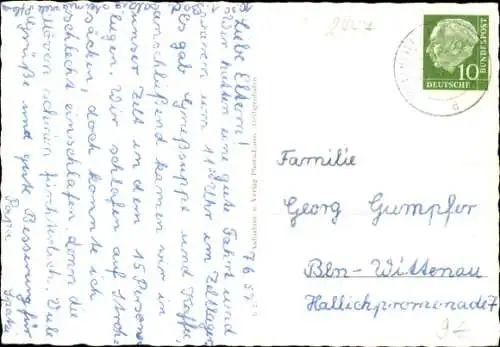 7.6.57
Liebe Eltern!
Wir hatten eine gute Fahrt und
waren um 11 00 Uhr im Zeltlager.
Es gab Gemüssuppe und Kaffe,
anschließend kamen wir in
unser Zelt in dem 15 Personen
liegen. Wir schlafen auf Stroh
säcken, doch konnte ich
schlecht einschlafen, denn die
Möwen schrien fürchterlich. Viele
Grüße und gute Besserung für
Aufnahme u. Verlag
DEUTSCHE
BUNDESPOST
10
Familie
Georg Gumpfer
Bln-Wittenau
Hallichpromenade 7